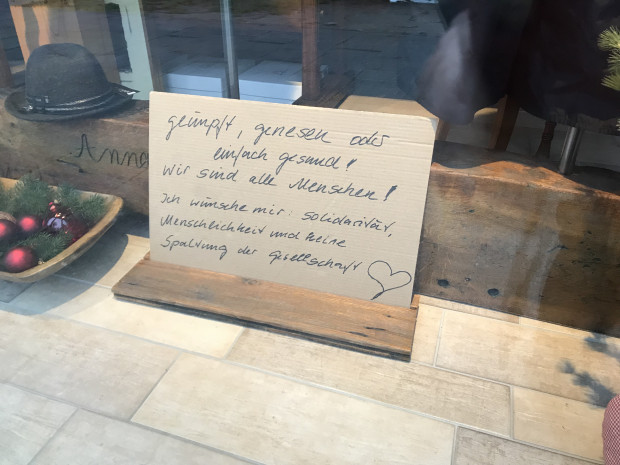 Anna
geimpft, genesen oder
einfach gesund!
Wir sind alle Menschen!
Ich wünsche mir: Solidarität,
Menschlichkeit und keine
Spaltung der Gesellschaft